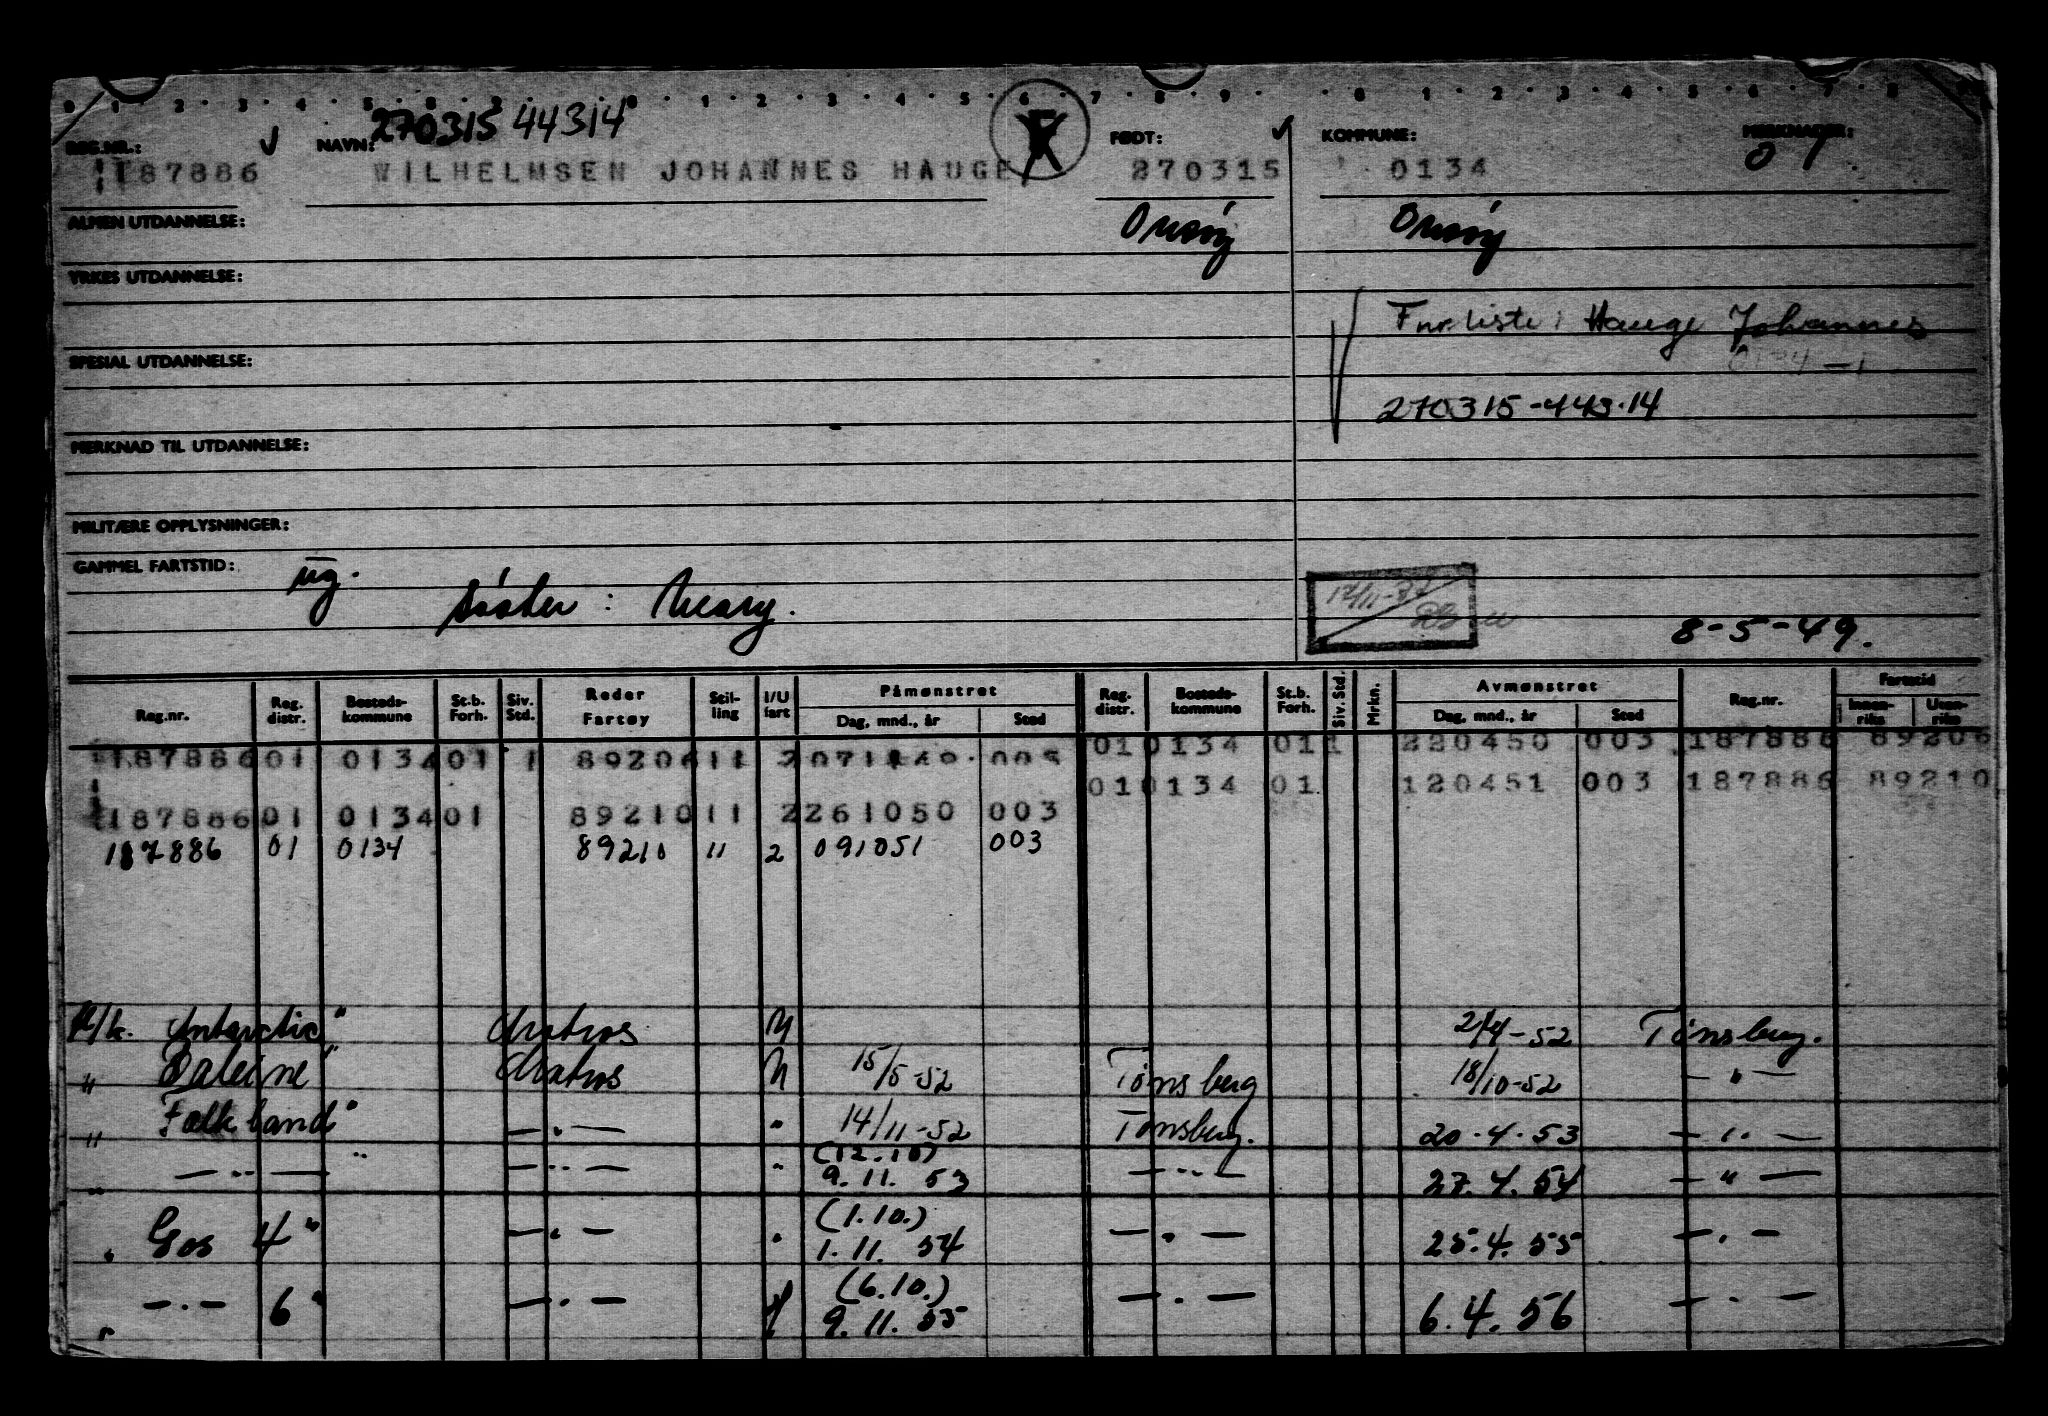 0 · 1 · 2 · 3 · 4 · 5 · 6 · 7 · 8 · 1 · 2 · 3 · 4 · 5 · 6 · 7 · 8 · 9 · 0 · 1 · 2 · 3 · 4 · 5 · 6 · 7 · 8
270315 44314
REG.NR.: NAVN: FØDT: KOMMUNE: MERKNADER:
187886 WILHELMSEN JOHANNES HAUGE 270315 0134 01
ALMEN UTDANNELSE: Onsøy Onsøy
YRKES UTDANNELSE:
Fnr liste: Hauge Johannes
SPESIAL UTDANNELSE: 0134 - 1
270315-443.14
MERKNAD TIL UTDANNELSE:
MILITÆRE OPPLYSNINGER:
GAMMEL FARTSTID: ug.
søster: Meary.
8-5-49.
Reg.nr. Reg. distr. Bosteds-kommune St.b. Forh. Siv. Std. Reder Fartøy Stil-ling I/U fart Påmønstret Dag, mnd., år Sted Reg. distr. Bosteds-kommune St.b. Forh. Siv. Std. Mrkn. Avmønstret Dag, mnd., år Sted Reg.nr. Fartstid Innen-riks Uten-riks
187886 01 0134 01 1 89206 11 2 071149 003 01 0134 01 1 220450 003 187886 89206
01 0134 01 120451 003 187886 89210
187886 01 0134 01 89210 11 2 261050 003
187886 01 0134 89210 11 2 091051 003
M/k. Antarctic" Matros U 2/4-52 Tönsberg.
" Baleine" Matros U 15/5-52 Tönsberg 18/10-52 — " —
" Falkland" — " — " 14/11-52 Tönsberg. 20.4.53 — " —
" — " — " — " — " (12.10) 9.11.53 — " — 27.4.54 — " —
" Gos 4" — " — " (1.10.) 1.11.54 — " — 25.4.55 — " —
" — " — 6" — " — (6.10.) 9.11.55 — " — 6.4.56 — " —